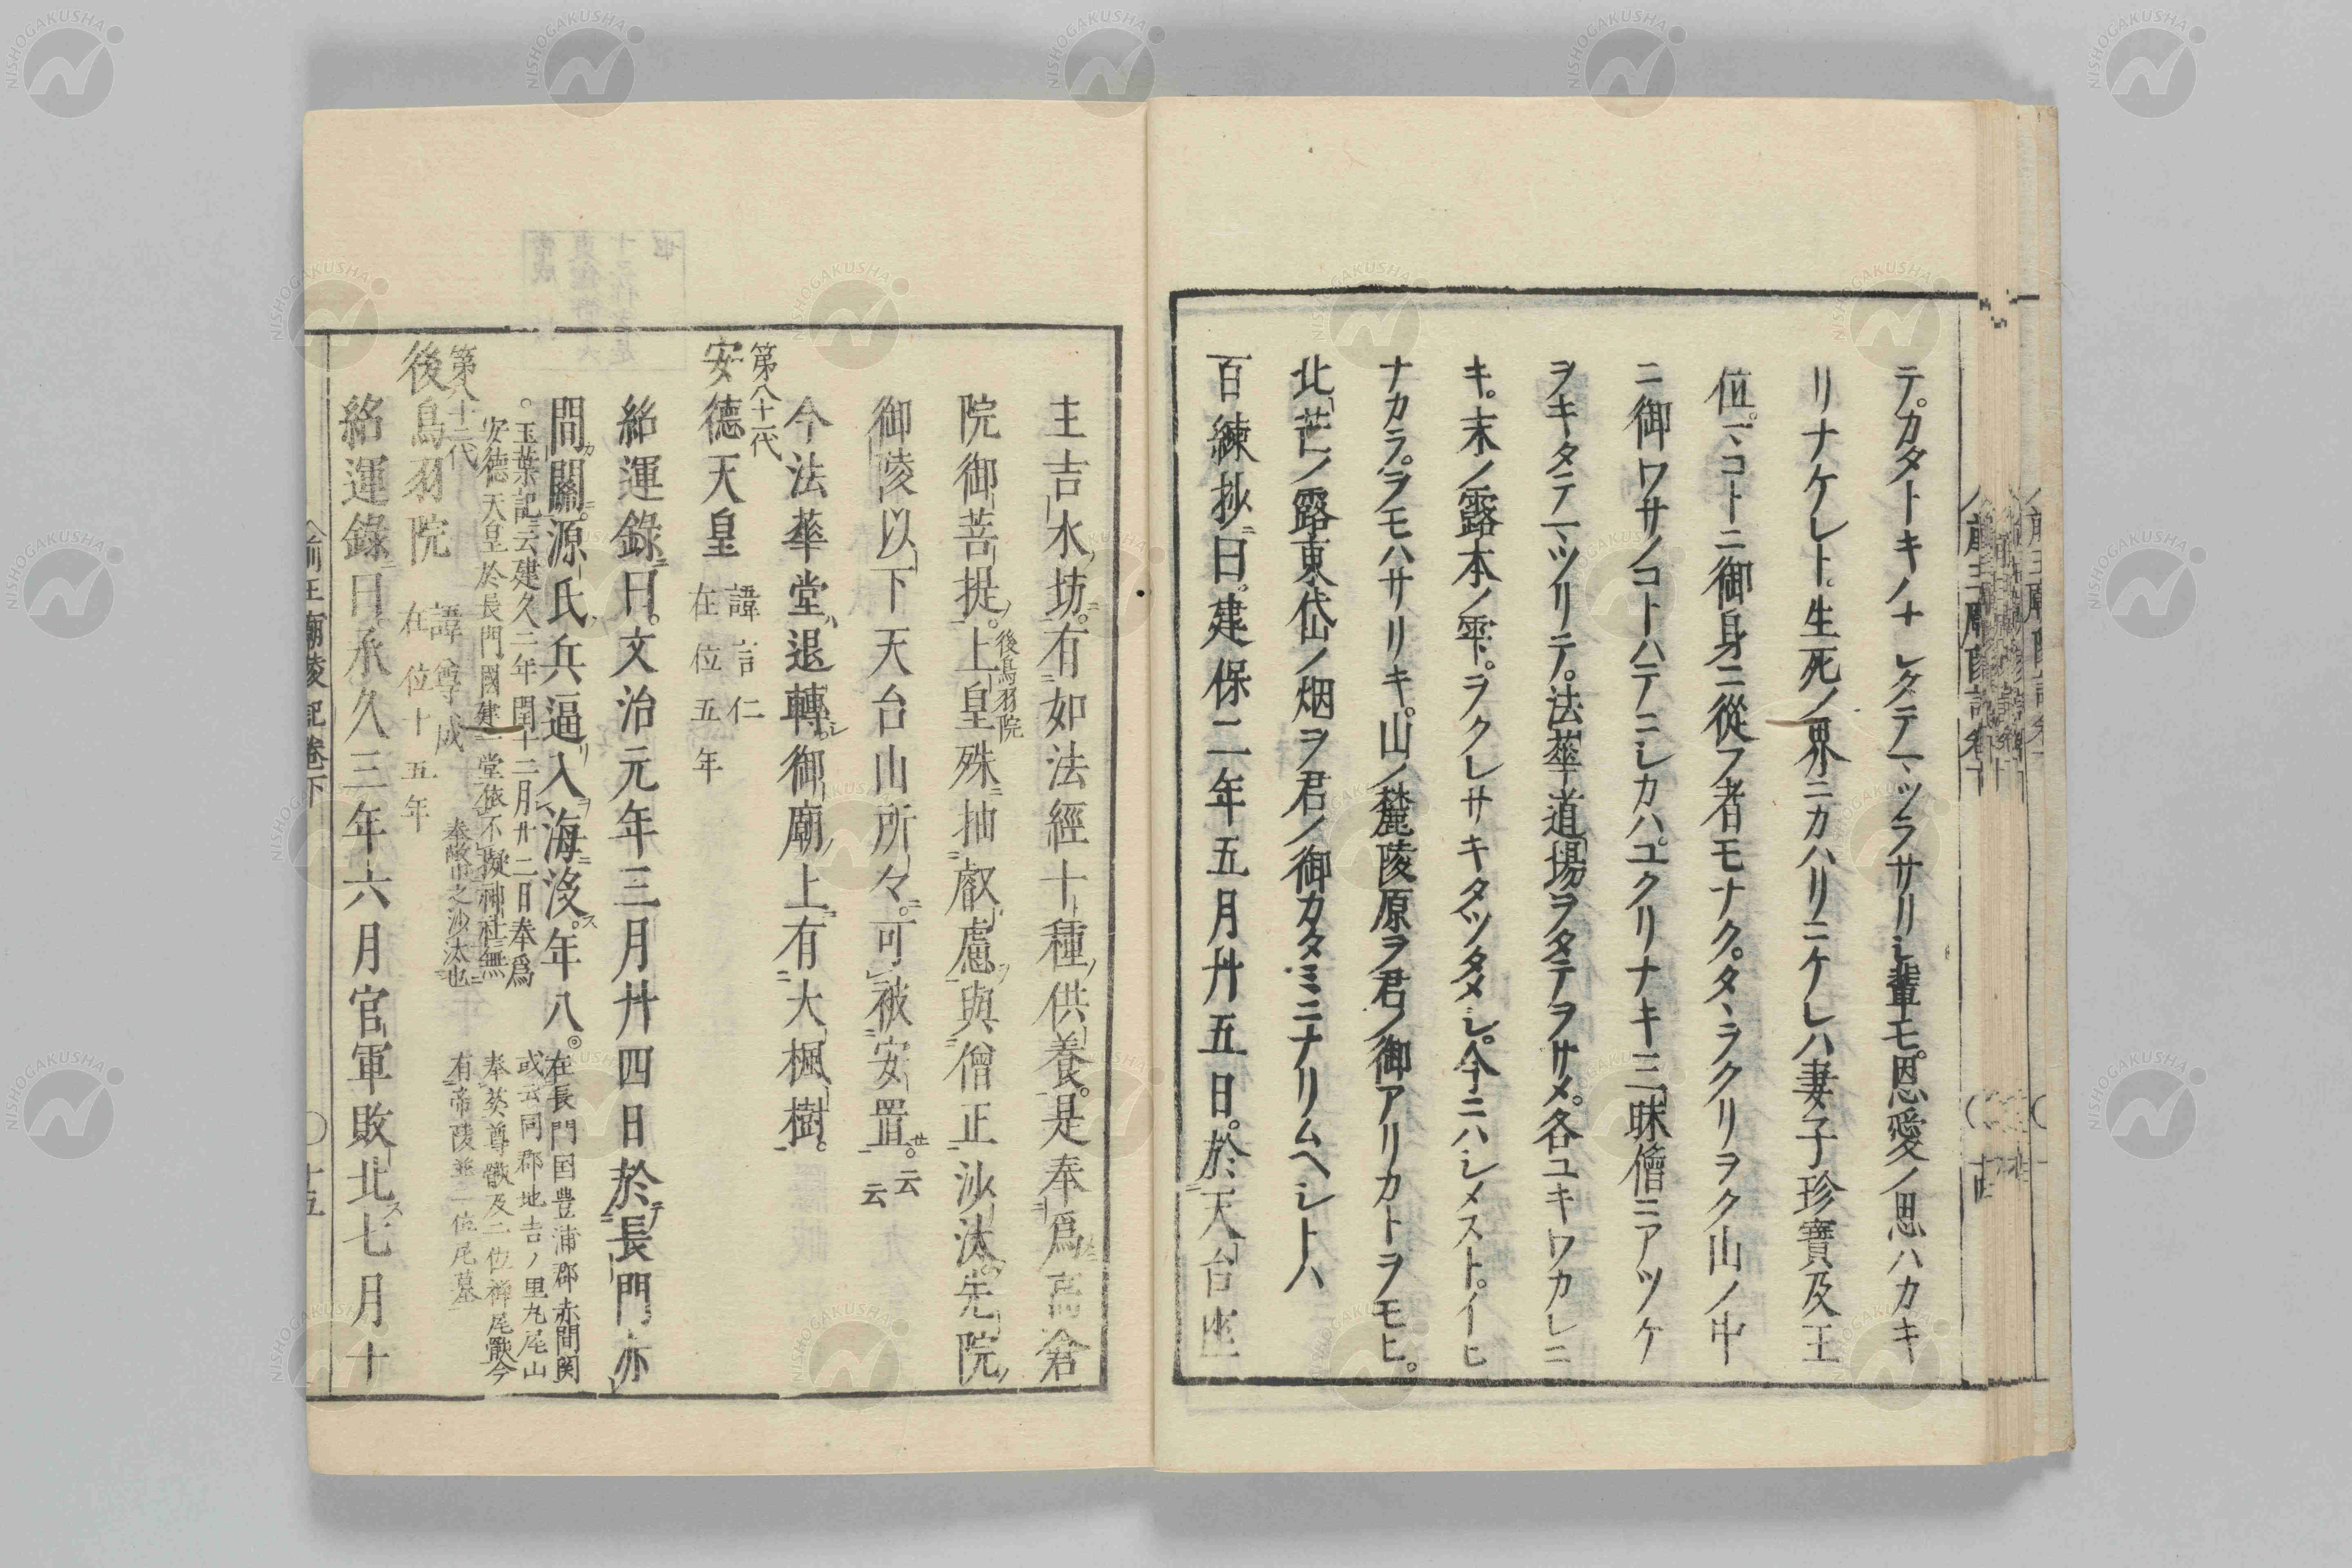 テ。カタトキノナレタテマツラサリシ輩モ。恩愛ノ思ハカキ
リナケレト。生死ノ界ニカハリニケレハ妻子珍寶及王
位。マコトニ御身ニ從フ者モナク。タヽラクリヲク山ノ中
ニ御ワサノコトハテニシカハ。ユクリナキ三昧僧ニアツケ
ヲキタテマツリテ。法華道場ヲタテヲサメ。各ユキワカレニ
キ。末ノ露本ノ雫。ヲクレサキタツタメシ。今ニハシメスト。イヒ
ナカラ。ヲモハサリキ。山ノ麓陵原ヲ君ノ御アリカトヲモヒ。
北芒ノ露東岱ノ烟ヲ君ノ御カタミニナリムヘシトハ
百練抄曰。建保二年五月廿五日。於天台座
主吉水坊。有如法經十種供養。是奉爲高倉
院御菩提。上皇後鳥羽院殊抽叡慮與僧正沙汰。先院
御陵以下天台山所々。可被安置。云云
今法華堂退轉。御廟上有大楓樹。
第八十一代
安德天皇 諱言仁 在位五年
紹運錄曰。文治元年三月廿四日於長門赤
間關。源氏兵逼入海沒。年八。在長門国豊浦郡赤間関
或云同郡地吉ノ里九尾山
奉葬尊骸及二位禪尼骸今
有帝陵並二位尼墓
。玉葉記云建久二年閏十二月廿二日奉爲
安德天皇於長門國建一堂依不擬神社無
奉敵帝之沙汰也
第八十二代
後鳥羽院 諱尊成 在位十五年
紹運錄曰承久三年六月官軍敗北七月十
前王廟陵記卷下 〇十五
NISHOGAKUSHA